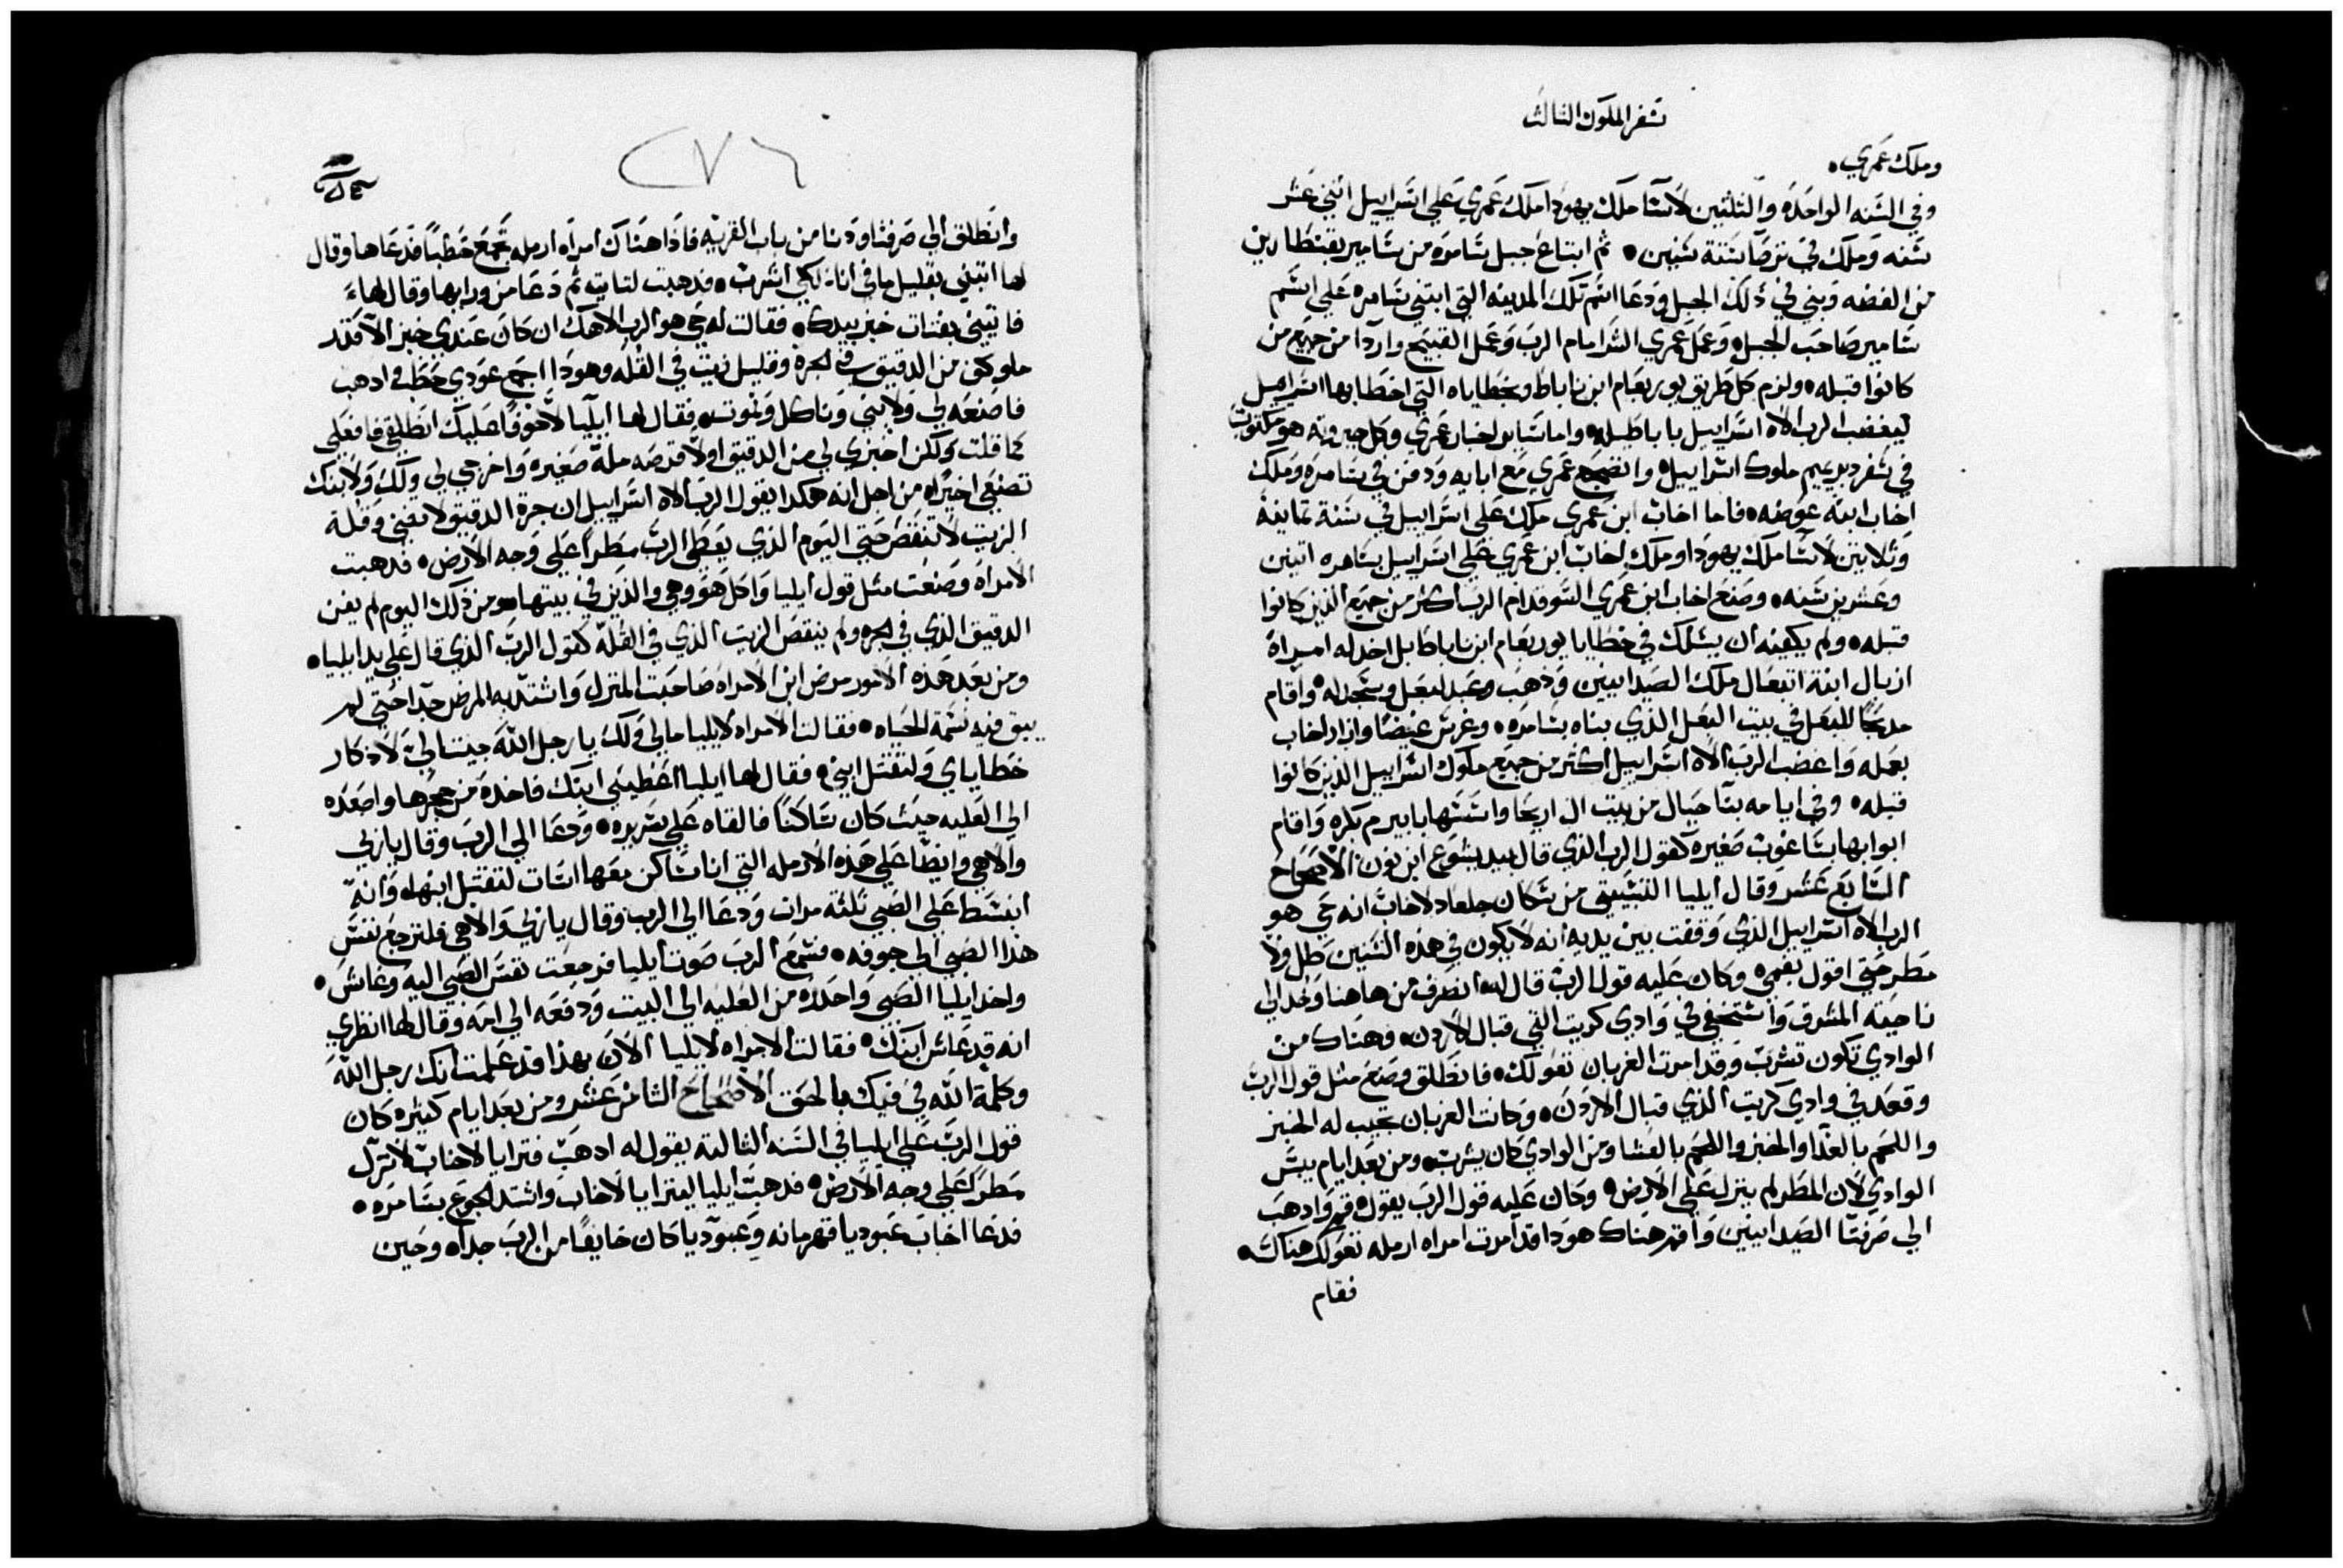 سفر الملوك الثالث
وملك عمري.
وفي السنه الواحده والثلثين لاسا ملك يهودا ملك عمري علي اسراييل اثني عشر
سنه وملك في ترصا ستة سنين. ثم ابتاع جبل سامره من سامير بقنطارين
من الفضه وبني في ذلك الجبل ودعا اسم تلك المدينه التي ابتني سامره علي اسم
سامير صاحب الجبل. وعمل عمري الشر امام الرب وعمل القبيح واردا من جميع من
كانوا قبله. ولزم كل طريق يوربعام ابن ناباط وبخطاياه التي اخطا بها اسراييل
ليغضب الرب الاه اسراييل باباطيله. واما ساير اخبار عمري وكل جبروته هو مكتوب
في سفر دبريميم ملوك اسراييل. وانضجع عمري مع ابايه ودفن في سامره وملك
اخاب ابنه عوضه. فاما اخاب ابن عمري ملك علي اسراييل في سنة تمانيه
وثلاثين لاسا ملك يهودا وملك اخاب ابن عمري علي اسراييل بسامره اثنين
وعشرين سنه. وصنع اخاب ابن عمري السو قدام الرب اكثر من جميع الذين كانوا
قبله. ولم يكفيه ان يسلك في خطايا يوربعام ابن ناباط بل اخد له امراة
ازبال ابنة اتبعال ملك الصيدانيين ودهب وعبد لبعل وسجد له. واقام
مدبحا للبعل في بيت البعل الذي بناه بسامره. وغرس غيضا وازاد اخاب
بعمله واغضب الرب الاه اسراييل اكثر من جميع ملوك اسراييل الذين كانوا
قبله. وفي ايامه بنا حيال من بيت ال اريحا واسسها بابيرم بكره واقام
ابوابها بساغوب صغيره كقول الرب الذي قال بيد يشوع ابن نون الاصحاح
السابع عشر وقال ايليا التسبيتي من سكان جلعاد لاخاب انه حي هو
الرب الاه اسراييل الذي وقفت بين يديه انه لا يكون في هذه السنين طل ولا
مطر حتي اقول بفمي. وكان عليه قول الرب قال له انصرف من هاهنا وخد الي
ناحية المشرق واستخفي في وادي كريت التي قبال الاردن. وهناك من
الوادي تكون تشرب وقد امرت الغربان تعولك. فانطلق وصنع مثل قول الرب
وقعد في وادي كريت الذي قبال الاردن. وكانت الغربان تجيب له الخبز
واللحم بالغدا والخبز واللحم بالعشا ومن الوادي كان يشرب. ومن بعد ايام يبس
الوادي لان المطر لم ينزل علي الارض. وكان عليه قول الرب يقول. قم وادهب
الي صرفتا الصيدانيين واقم هناك هودا قد امرت امراه ارمله تعولك هناك.
فقام
٢٧٦
وانطلق الي صرفتا ودنا من باب القريه فادا هناك امراه ارمله تجمع حطبا فدعاها وقال
لها اتيني بقليل ما في انا. لكي اشرب. فدهبت لتاتيه ثم دعا من ورايها وقال لها
فاتيني بفتات خبز بيدك. فقالت له حي هو الرب الاهك ان كان عندي خبز الا قدر
ملو كفي من الدقيق في الجره وقليل زيت في القله وهودا اجمع عودي حطب ادهب
فاصنعه لي ولابني وناكل ونموت. فقال لها ايليا لا خوفا عليك انطلقي فافعلي
كما قلت ولكن اخبزي لي من الدقيق اولا قدصه ملة صغيره واخرجي لي ولك ولابنك
تصنعي اخيرا. من اجل انه هكدا يقول الرب الاه اسراييل ان جرة الدقيق لا تفني وقلة
الزيت لا تنقص حتي اليوم الذي يعطي الرب مطرا علي وجه الارض. فدهبت
الامراه وصنعت مثل قول ايليا واكل هو وهي والذين في بيتها. ومن ذلك اليوم لم يفن
الدقيق الذي في الجره ولم ينقص الزيت الذي في القلة كقول الرب الذي قال علي يد ايليا.
ومن بعد هذه الامور مرض ابن الامراه صاحبت المنزل واشتد به المرض جدا حتي لم
يبق فيه نسمة الحياه. فقالت الامراه لايليا ما لي ولك يا رجل الله جيت الي لاذكار
خطاياي ولتقتل ابني. فقال لها ايليا اعطيني ابنك فاخده من حجرها واصعده
الي العليه حيث كان ساكنا فالقاه علي سريره. ودعا الي الرب وقال يا ربي
والاهي وايضا علي هذه الارمله التي انا ساكن معها اسات لتقتل ابنها. وانه
انبسط علي الصبي ثلثه مرات ودعا الي الرب وقال يا ربي والاهي فلترجع نفس
هذا الصبي الي جوفه. فسمع الرب صوت ايليا فرجعت نفس الصبي اليه وعاش.
واخد ايليا الصبي واحدره من العليه الي البيت ودفعه الي امه وقال لها انظري
انه قد عاش ابنك. فقالت الامراه لايليا الان بهذا قد علمت انك رجل الله
وكلمة الله في فيك بالحق الاصحاح الثامن عشر ومن بعد ايام كثيره كان
قول الرب علي ايليا في السنه الثالثه يقول له ادهب فترايا لاخاب لانزل
مطرا علي وجه الارض. فدهب ايليا ليترايا لاخاب واشتد الجوع بسامره.
فدعا اخاب عبوديا قهرمانه وعبوديا كان خايفا من الرب جدا. وحين